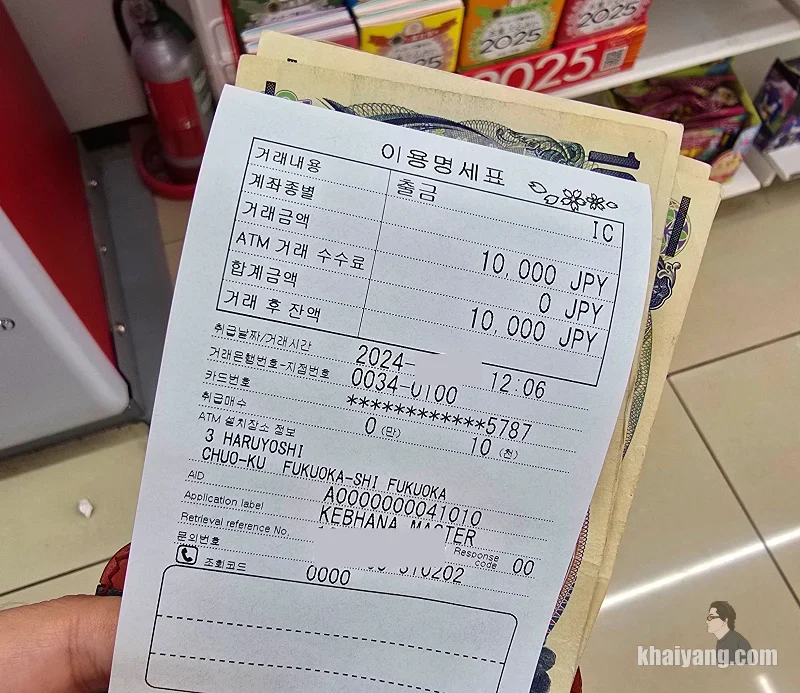 2025
2025
2025
2025
이용명세표
거래내용 출금
계좌종별 IC
거래금액 10,000 JPY
ATM 거래 수수료 0 JPY
합계금액 10,000 JPY
거래 후 잔액
취급날짜/거래시간 2024- 12:06
거래은행번호-지점번호 0034-0100
카드번호 ************5787
취급매수 0 (만) 10 (천)
ATM 설치장소 정보
3 HARUYOSHI
CHUO-KU FUKUOKA-SHI FUKUOKA
AID A0000000041010
Application label KEBHANA MASTER
Retrieval reference No. Response code 00
문의번호
조회코드 0000
khaiyang.com